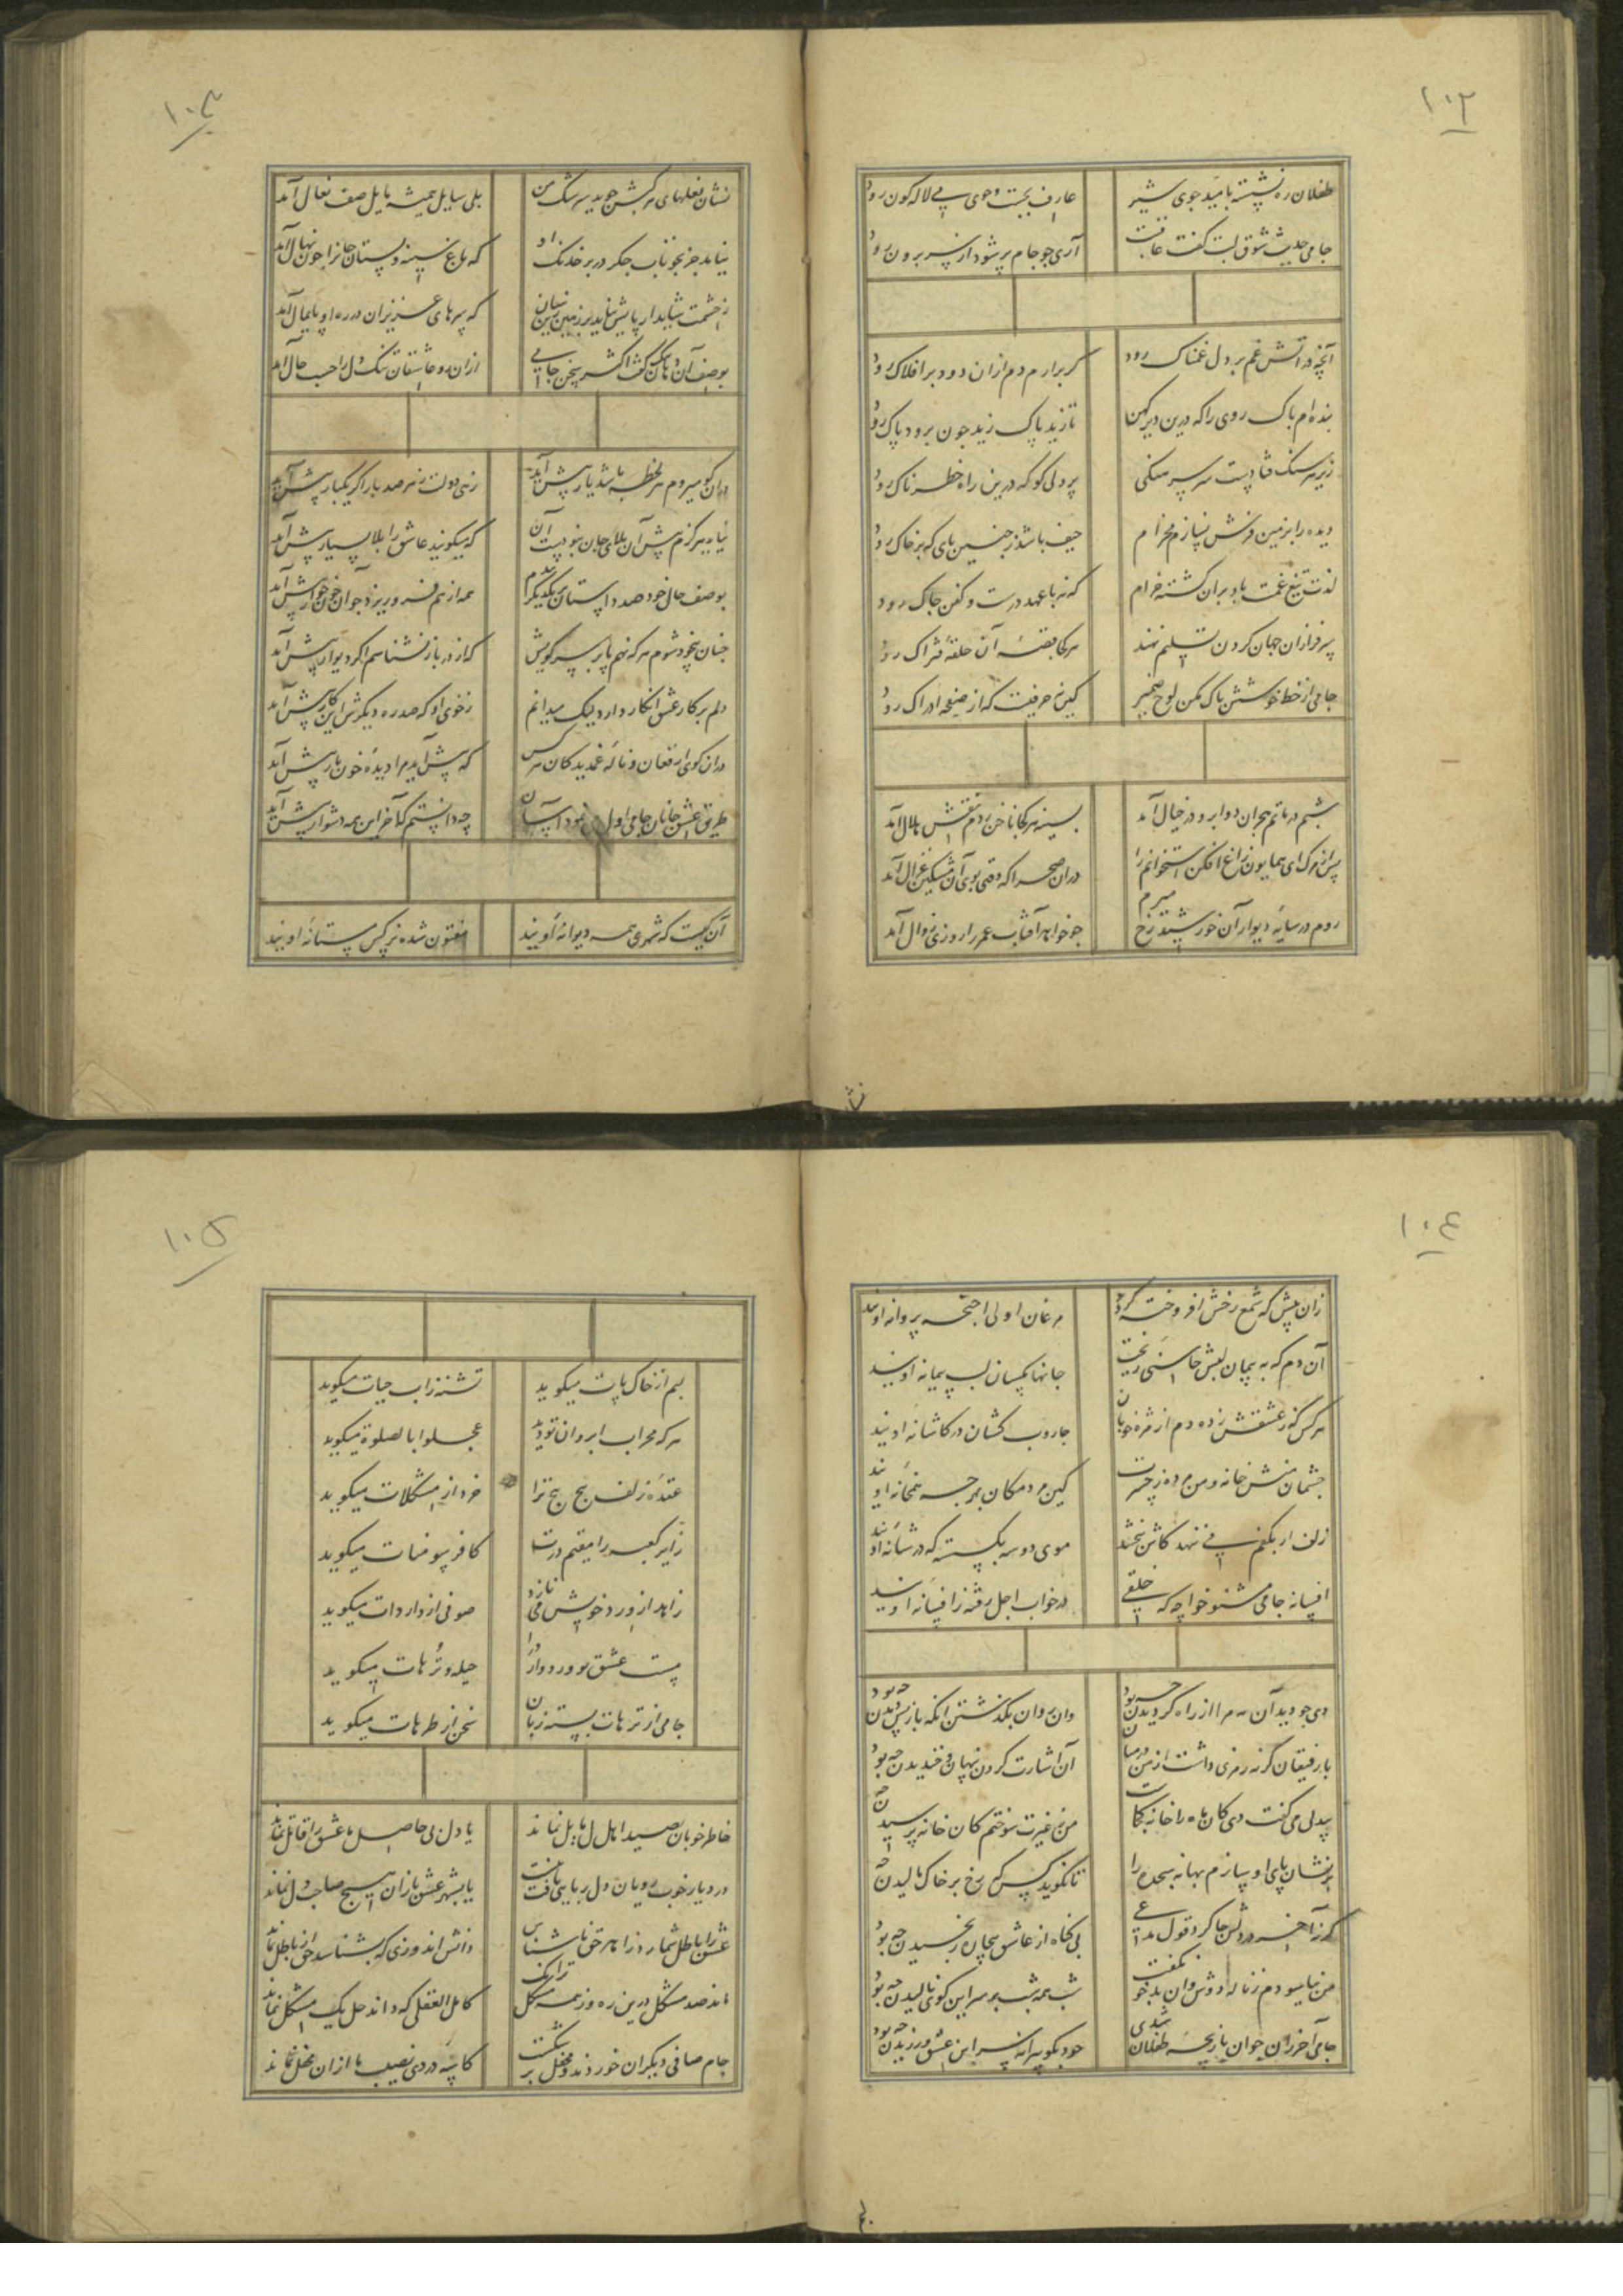 ۱۰۲
طفلان ره نشسته بامید جوی شیر
عارف بجست وجوی می لاله کون رود
جامی حدیث شوق لبت کفت عاقبت
آری چو جام پر شود از سر برون رود
آنچه در آتش غم بر دل غمناک رود
کر برارم دم ازان دود بر افلاک رود
بنده ام پاک روی را که درین دیر کهن
تا زید پاک زید چون برود پاک رود
پر دلی کو که درین راه خطرناک رود
دیده را بر زمین فرش بسازم مخرام
حیف باشد ز چنین پای که بر خاک رود
لذت تیغ غمت باد بران کشته حرام
که نه با عهد درست و کفن چاک رود
سرفرازان جهان کردن تسلیم نهند
هر کجا قصه آن حلقه فتراک رود
جامی از خط خوشش پاک مکن لوح ضمیر
کین نه حرفیست که از صفحه ادراک رود
شبم در ماتم هجران دو ابرو در خیال آمد
بسینه هر کجا ناخن زدم نقش هلال آمد
پس از مرک ای همایون زاغ افکن استخوانم را
دران صحرا که وقتی بوی آن مشکین غزال آمد
روم در سایه دیوار آن خورشید رخ میرم
چو خواهد آفتاب عمر را روزی زوال آمد
۱۰۳
نشان نعلهای مرکبش جوید سرشک من
بلی سایل همیشه مایل صف نعال آمد
نیاید جز بخوناب جکر در بر خدنک او
که باغ سینه و بستان جانرا چون نهال آمد
که سرهای عزیزان در ره او پایمال آمد
بوصف آن دهان کفت اکثر سخن جامی
ازان رو عاشقان تنک دل را حسب حال آمد
دران کو میروم هر لحظه باشد یار پیش آید
زهی دولت ز هر صد بار اکر یکبار پیش آید
که میکویند عاشق را بلا بسیار پیش آید
بوصف حال خود صد داستان بر یکدیکر بندم
همه از هم فرو ریزد چو آن خونخوار پیش آید
چنان بیخود شوم هر که نهم پا بر سر کویش
که از در باز نشناسم اکر دیوار پیش آید
دلم بر کار عشق انکار دارد لیک میدانم
ز خوی او که صد ره دیکرش این کار پیش آید
دران کوی از فغان و ناله غمدیدکان هر کس
که پیش آید مرا دیده خونبار پیش آید
طریق عشق جانان جامی اول می نمود آسان
چه دانستم که آخر این همه دشوار پیش آید
آن کیست که شهری همه دیوانه اویند
مفتون شده نرکس مستانه اویند
۱۰۴
زان پیش که شمع رخش افروخته کردد
مرغان اولی اجنحه پروانه اویند
آن دم که به پیمان لبش چاشنی ریخت
جانها مکسان لب پیمانه اویند
هر کس که ز عشقش زده دم از مژه خوبان
جاروب کشان در کاشانه اویند
چشمان منش خانه و من مرده ز حسرت
کین مردمکان بهر چه همخانه اویند
موی دو سه بکسسته که در شانه اویند
افسانه جامی مشنو خواجه که خلقی
در خواب اجل رفته ز افسانه اویند
دی چو دید آن مه مرا از راه کردیدن چه بود
وان روان بکذشتن انکه باز پس دیدن چه بود
با رفیقان کر نه رمزی داشت از من درمیان
آن اشارت کردن پنهان و خندیدن چه بود
بیدلی می کفت دی کان ماه را خانه کجاست
من ز غیرت سوختم کان خانه پرسیدن چه
بر نشان پای او سازم بهانه سجده را
تا نکوید کس که رخ بر خاک مالیدن چه
کرنه آخر در دلش جا کرد قول مدعی
بی کناه از عاشق بیچاره رنجیدن چه بود
من نیاسودم ز ناله دوش وان بدخو نکفت
شب همه شب بر سر این کوی نالیدن چه بود
جامی آخر زان جوان بازیچه طفلان شدی
خود بکو پیرانه سر این عشق ورزیدن چه بود
۱۰۵
لبم از خاک پات میکوید
تشنه ز اب حیات میکوید
هر که محراب ابروان تو دید
عجلوا بالصلوة میکوید
عقده زلف پیچ پیچ ترا
خرد از مشکلات میکوید
زایر کعبه را مقیم درت
کافر سومنات میکوید
زاهد از ورد خویش می نازد
صوفی از واردات میکوید
مست عشق تو ورد وارد را
حیله و ترهات میکوید
جامی از ترهات بسته زبان
سخن از طرهات میکوید
خاطر خوبان بصید اهل دل مایل نماند
یا دل بی حاصل ما عشق را قابل نماند
در دیار خوب رویان دل ربایی یافت نیست
یا بشهر عشق بازان هیچ صاحب دل نماند
عشق را باطل شمارد زاهد حق ناشناس
دانش اندوزی که بشناسد حق از باطل نماند
ماند صد مشکل درین ره وز همه مشکل ترانک
کامل العقلی که داند حل یک مشکل نماند
جام صافی دیکران خوردند و محفل بر شکست
کاسه دردی نصیب ما ازان محفل نماند